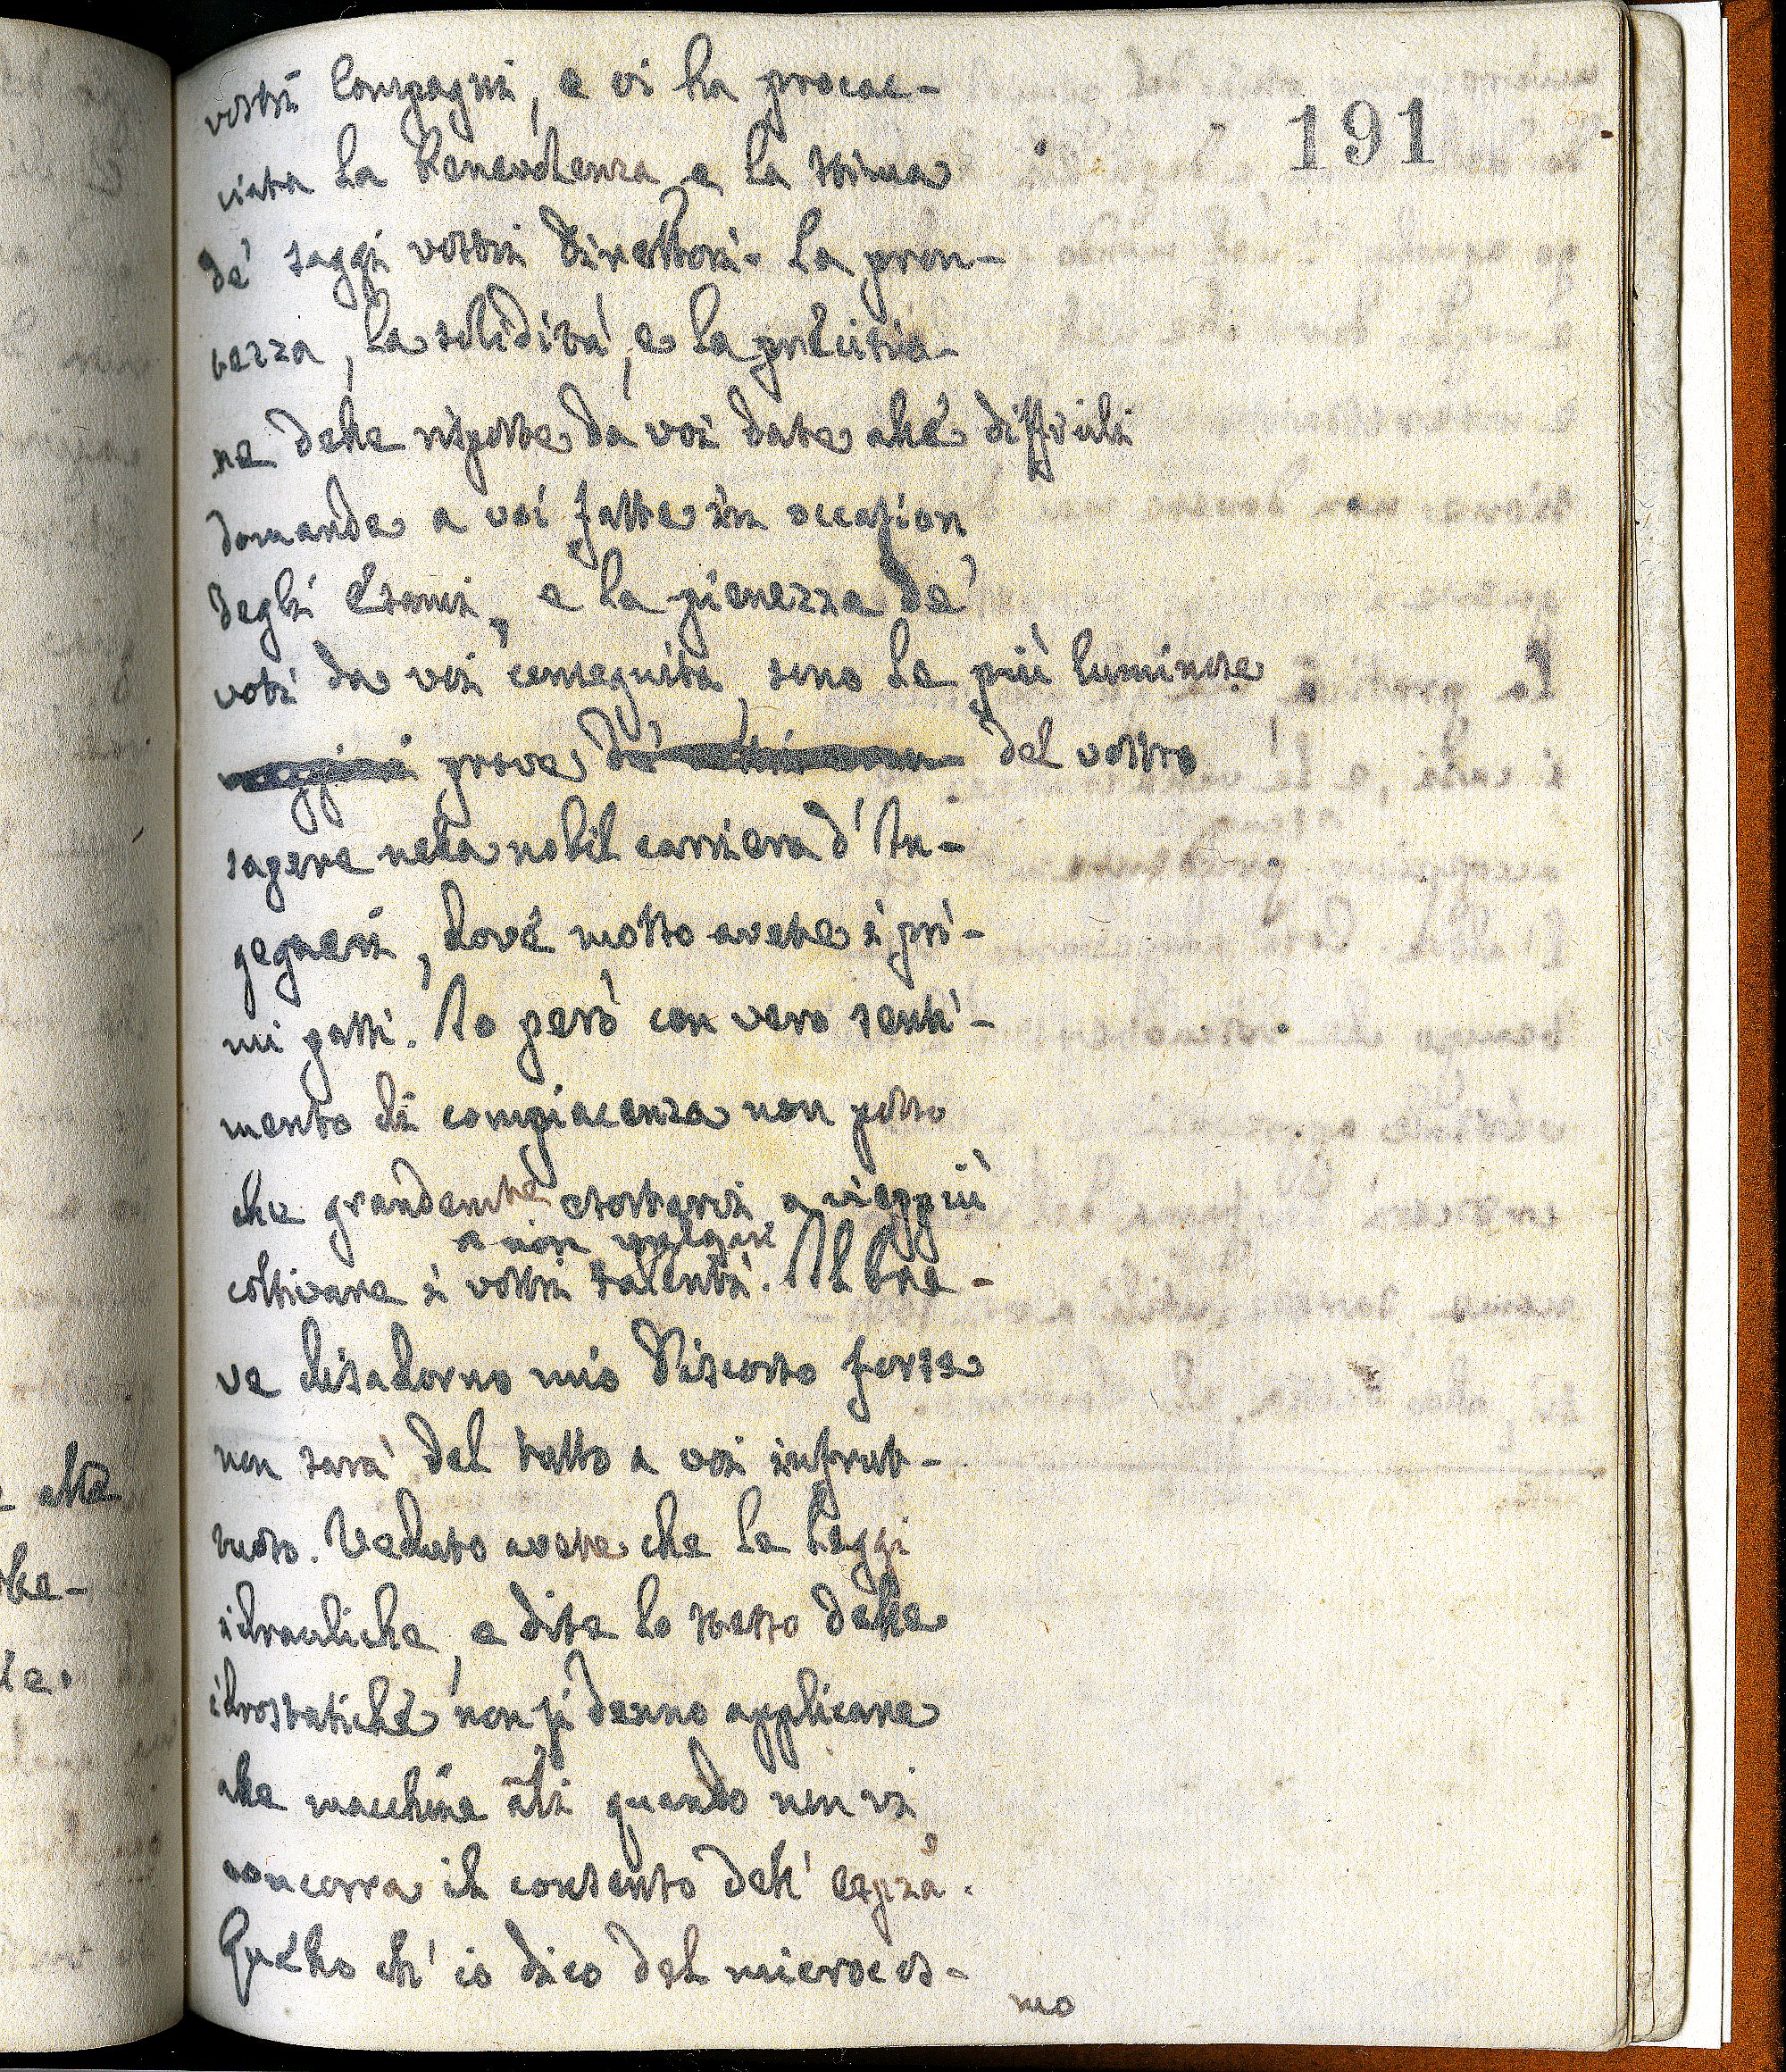 191
vostri Compagni, e vi ha procac-
ciata la benevolenza, e la stima
de' saggi vostri Direttori. La pron-
tezza, la solidità, e la precisio-
ne delle risposte da voi date alle difficili
domande a voi fatte in occasion
degli Esami, e la pienezza de'
voti da voi conseguita, sono le più luminose
prove del vostro
sapere nella nobil carriera d'In-
gegneri, dove mosso avete i pri-
mi passi. Io però con vero senti-
mento di compiacenza non posso
che grandemte esortarvi a vieppiù
a non volgari
coltivare i vostri talenti. Il bre-
ve disadorno mio Discorso forse
non sarà del tutto a voi infrut-
tuoso. Veduto avete che le leggi
idrauliche, e dite lo stesso delle
idrostatiche, non si denno applicare
alle macchine ãli quando non vi
concorra il consenso dell' espza.
Quello ch' io dico del microcos-
mo
alta
be-
ie.